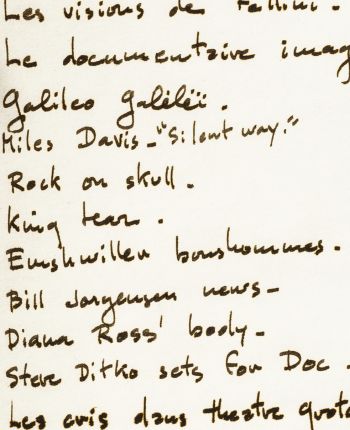 Les visions de Fellini.
Le documentaire imag
Galileo Galèlëi.
Miles Davis - "Silent way."
Rock on skull.
King tear.
Emshwiller bonshommes.
Bill Jorgensen news -
Diana Ross' body -
Steve Ditko sets for Doc.
Les cris dans theatre